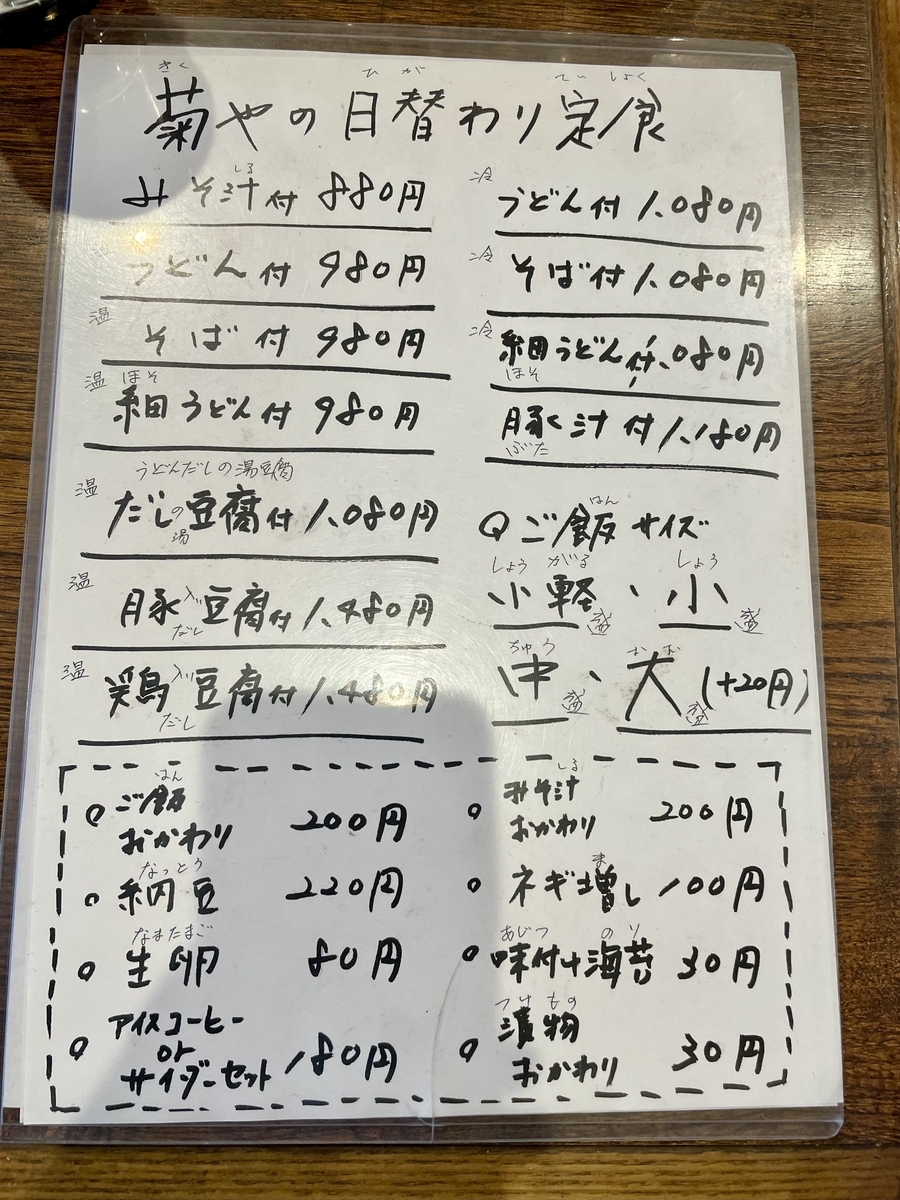 きく ひ が てい しょく
菊やの日替わり定食
しる
みそ汁付 880円
うどん付 980円
温
そば付 980円
温 ほそ
細うどん付 980円
うどんだしの湯豆腐
温
だしの豆腐付 1,080円
湯
温
豚入り豆腐付 1,480円
だし
温
鶏入り豆腐付 1,480円
だし
冷
うどん付 1,080円
冷
そば付 1,080円
冷
細うどん付 1,080円
ほそ
豚汁付 1,180円
ぶた
はん
ご飯サイズ
しょう がる しょう
小軽盛、小盛
ちゅう おお
中盛、大盛(+20円)
はん
ご飯
おかわり 200円
なっとう
納豆 220円
なまたまご
生卵 80円
アイスコーヒー
or
サイダーセット 180円
しる
みそ汁
おかわり 200円
ま
ネギ増し 100円
あじつ のり
味付け海苔 30円
つけもの
漬物
おかわり 30円